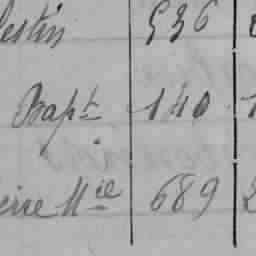 lestin 536
Bapt. 140 1
eire Mie 689 2